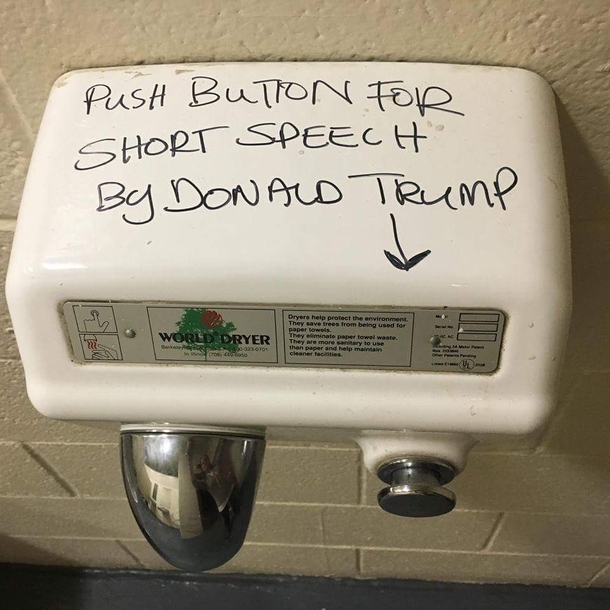 PUSH BUTTON FOR
SHORT SPEECH
By DONALD TRUMP
WORLD DRYER
Dryers help protect the environment.
They save trees from being used for
paper towels.
They eliminate paper towel waste.
They are more sanitary to use
than paper and help maintain
cleaner facilities.
Serial No
Other Patents Pending
UL